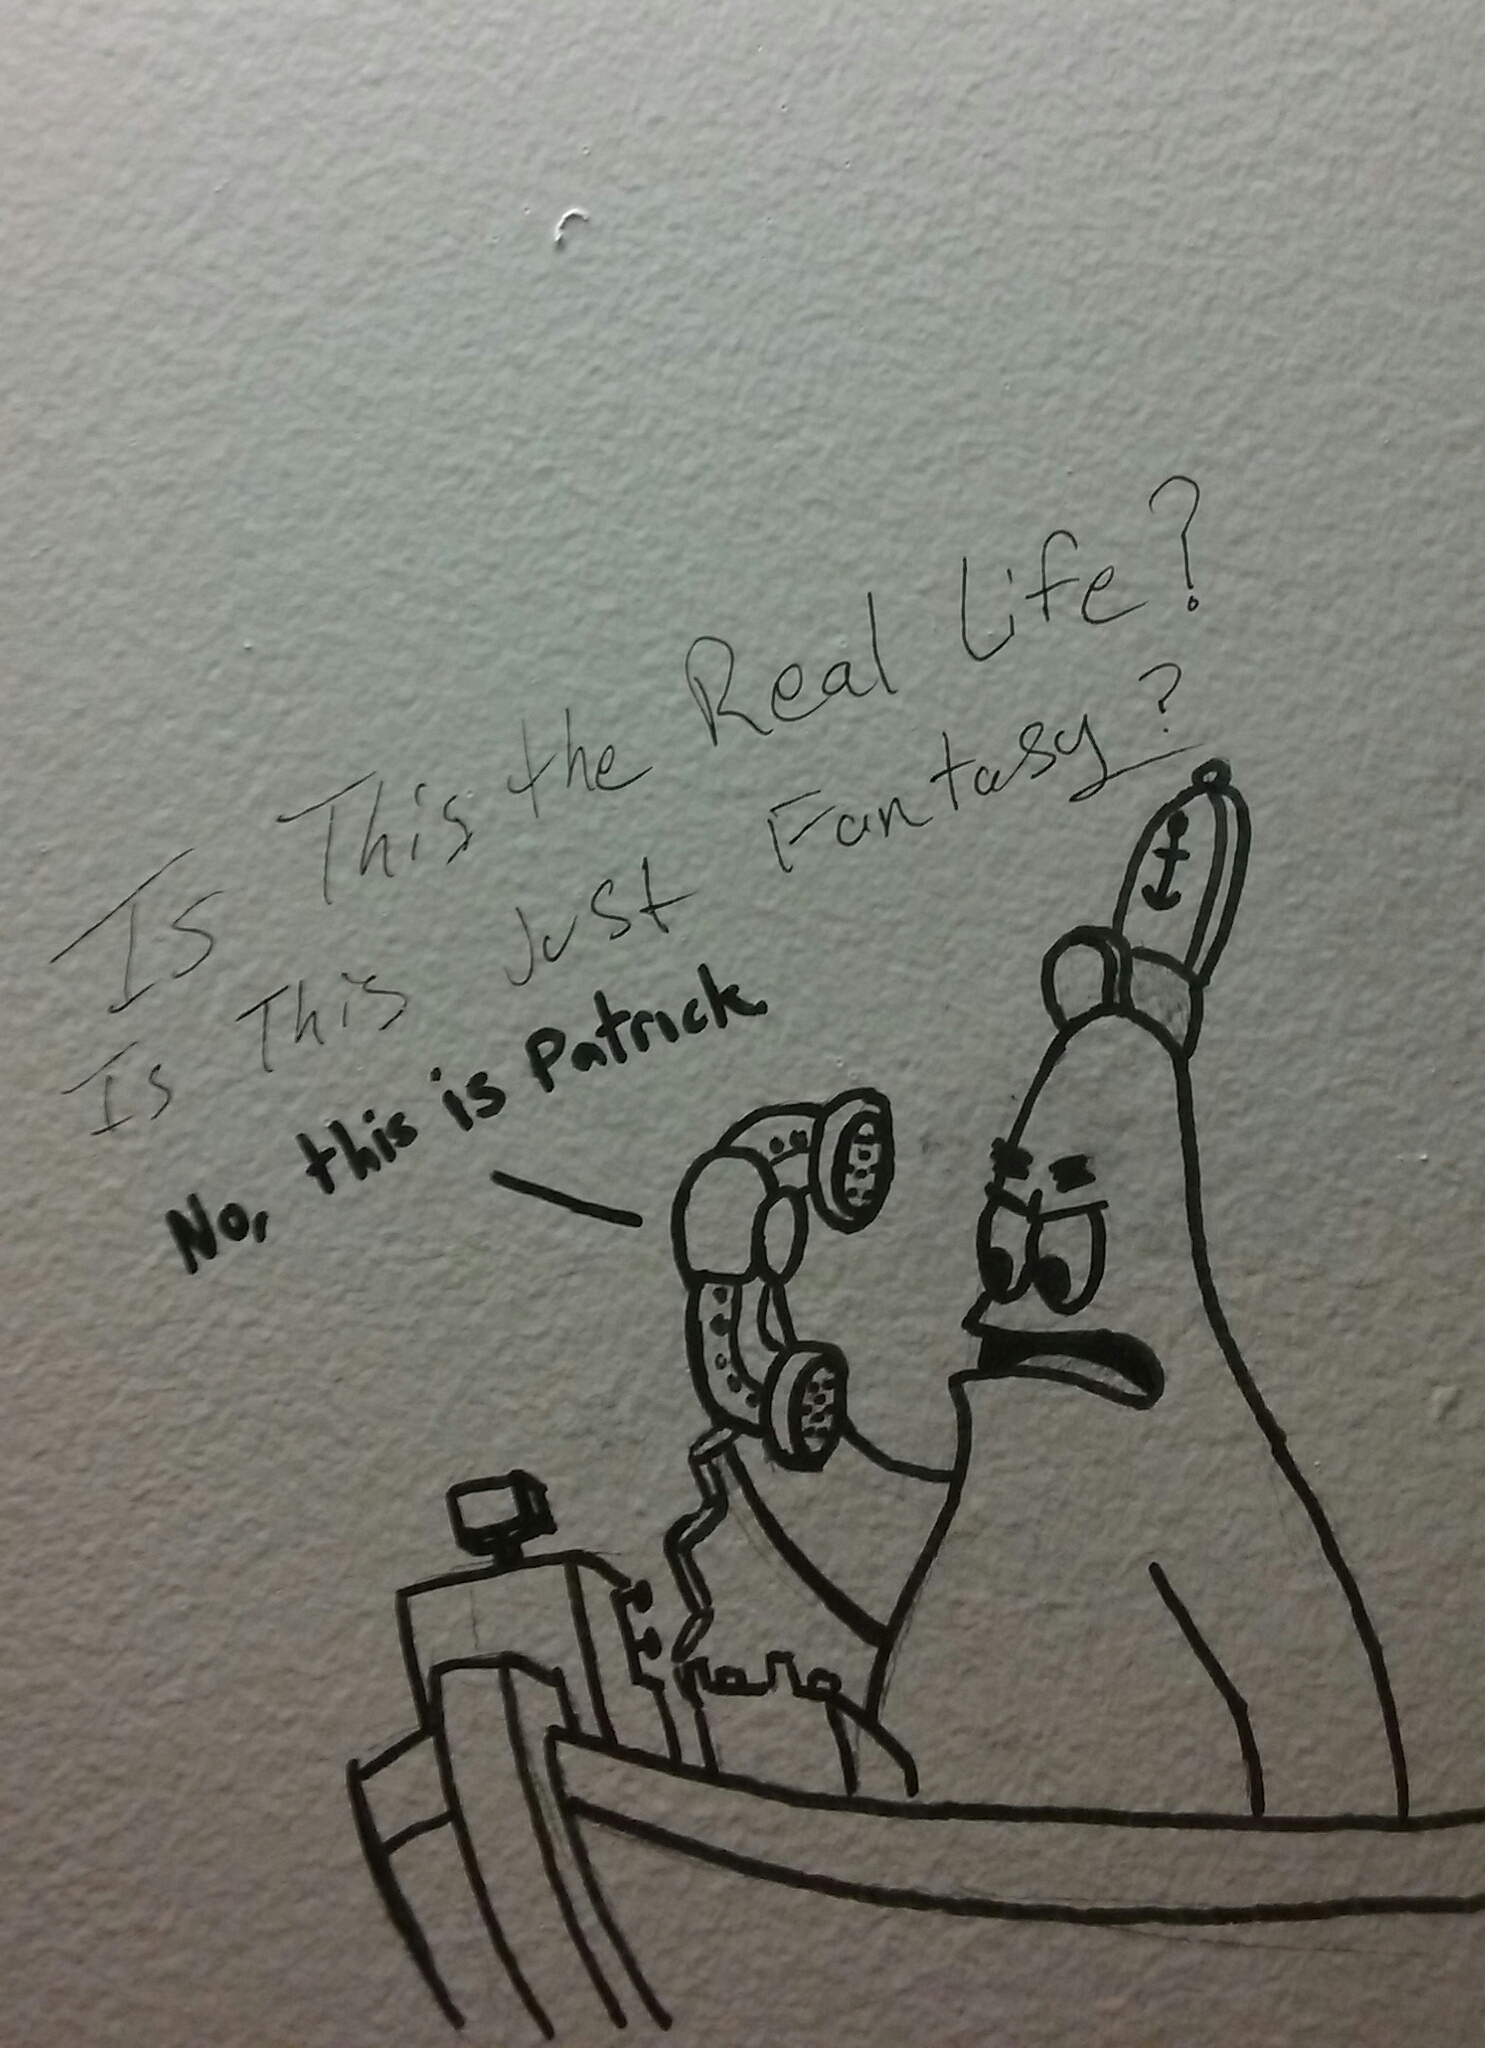 Is This the Real Life?
Is This Just Fantasy?
No, this is Patrick.